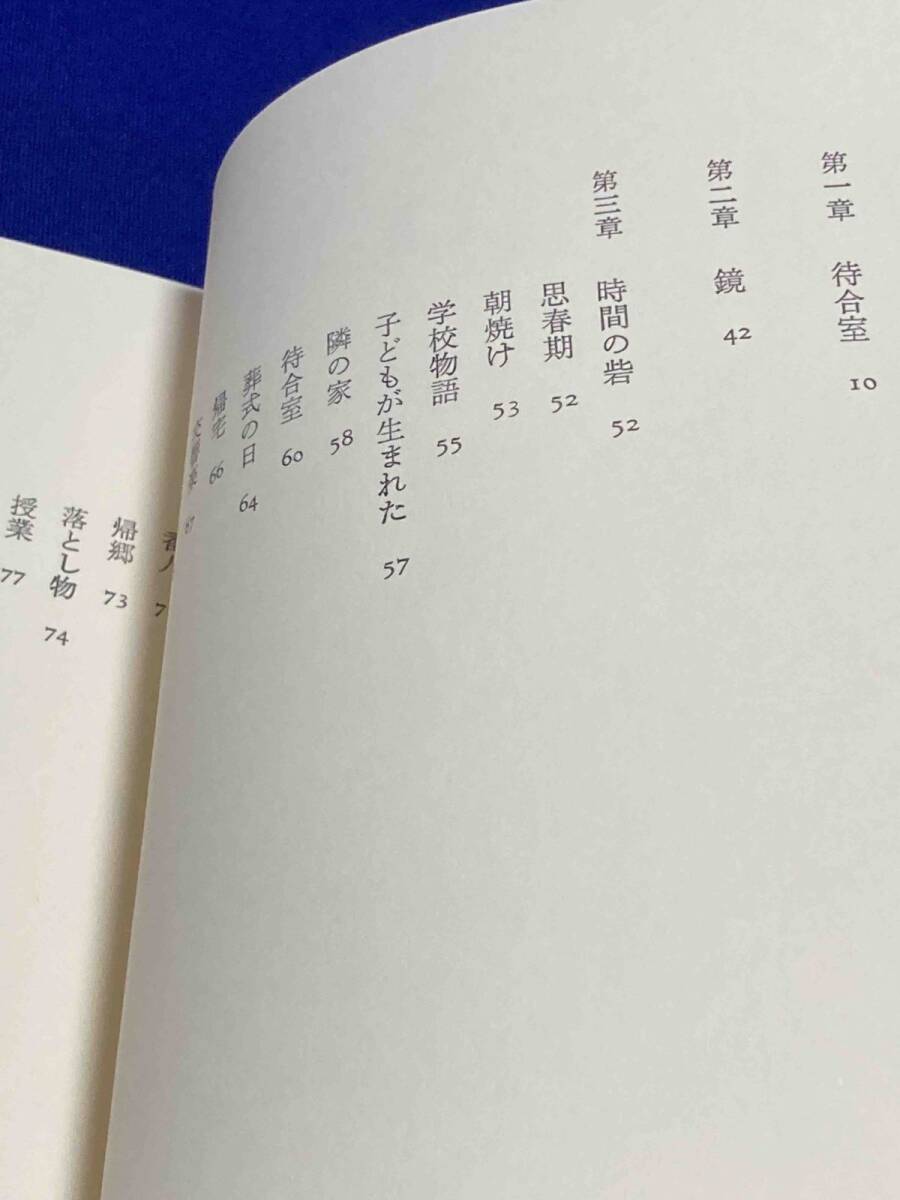 第一章 待合室 10
第二章 鏡 42
第三章 時間の砦 52
思春期 52
朝焼け 53
学校物語 55
子どもが生まれた 57
隣の家 58
待合室 60
葬式の日 64
帰宅 66
67
帰郷 73
落とし物 74
授業 77